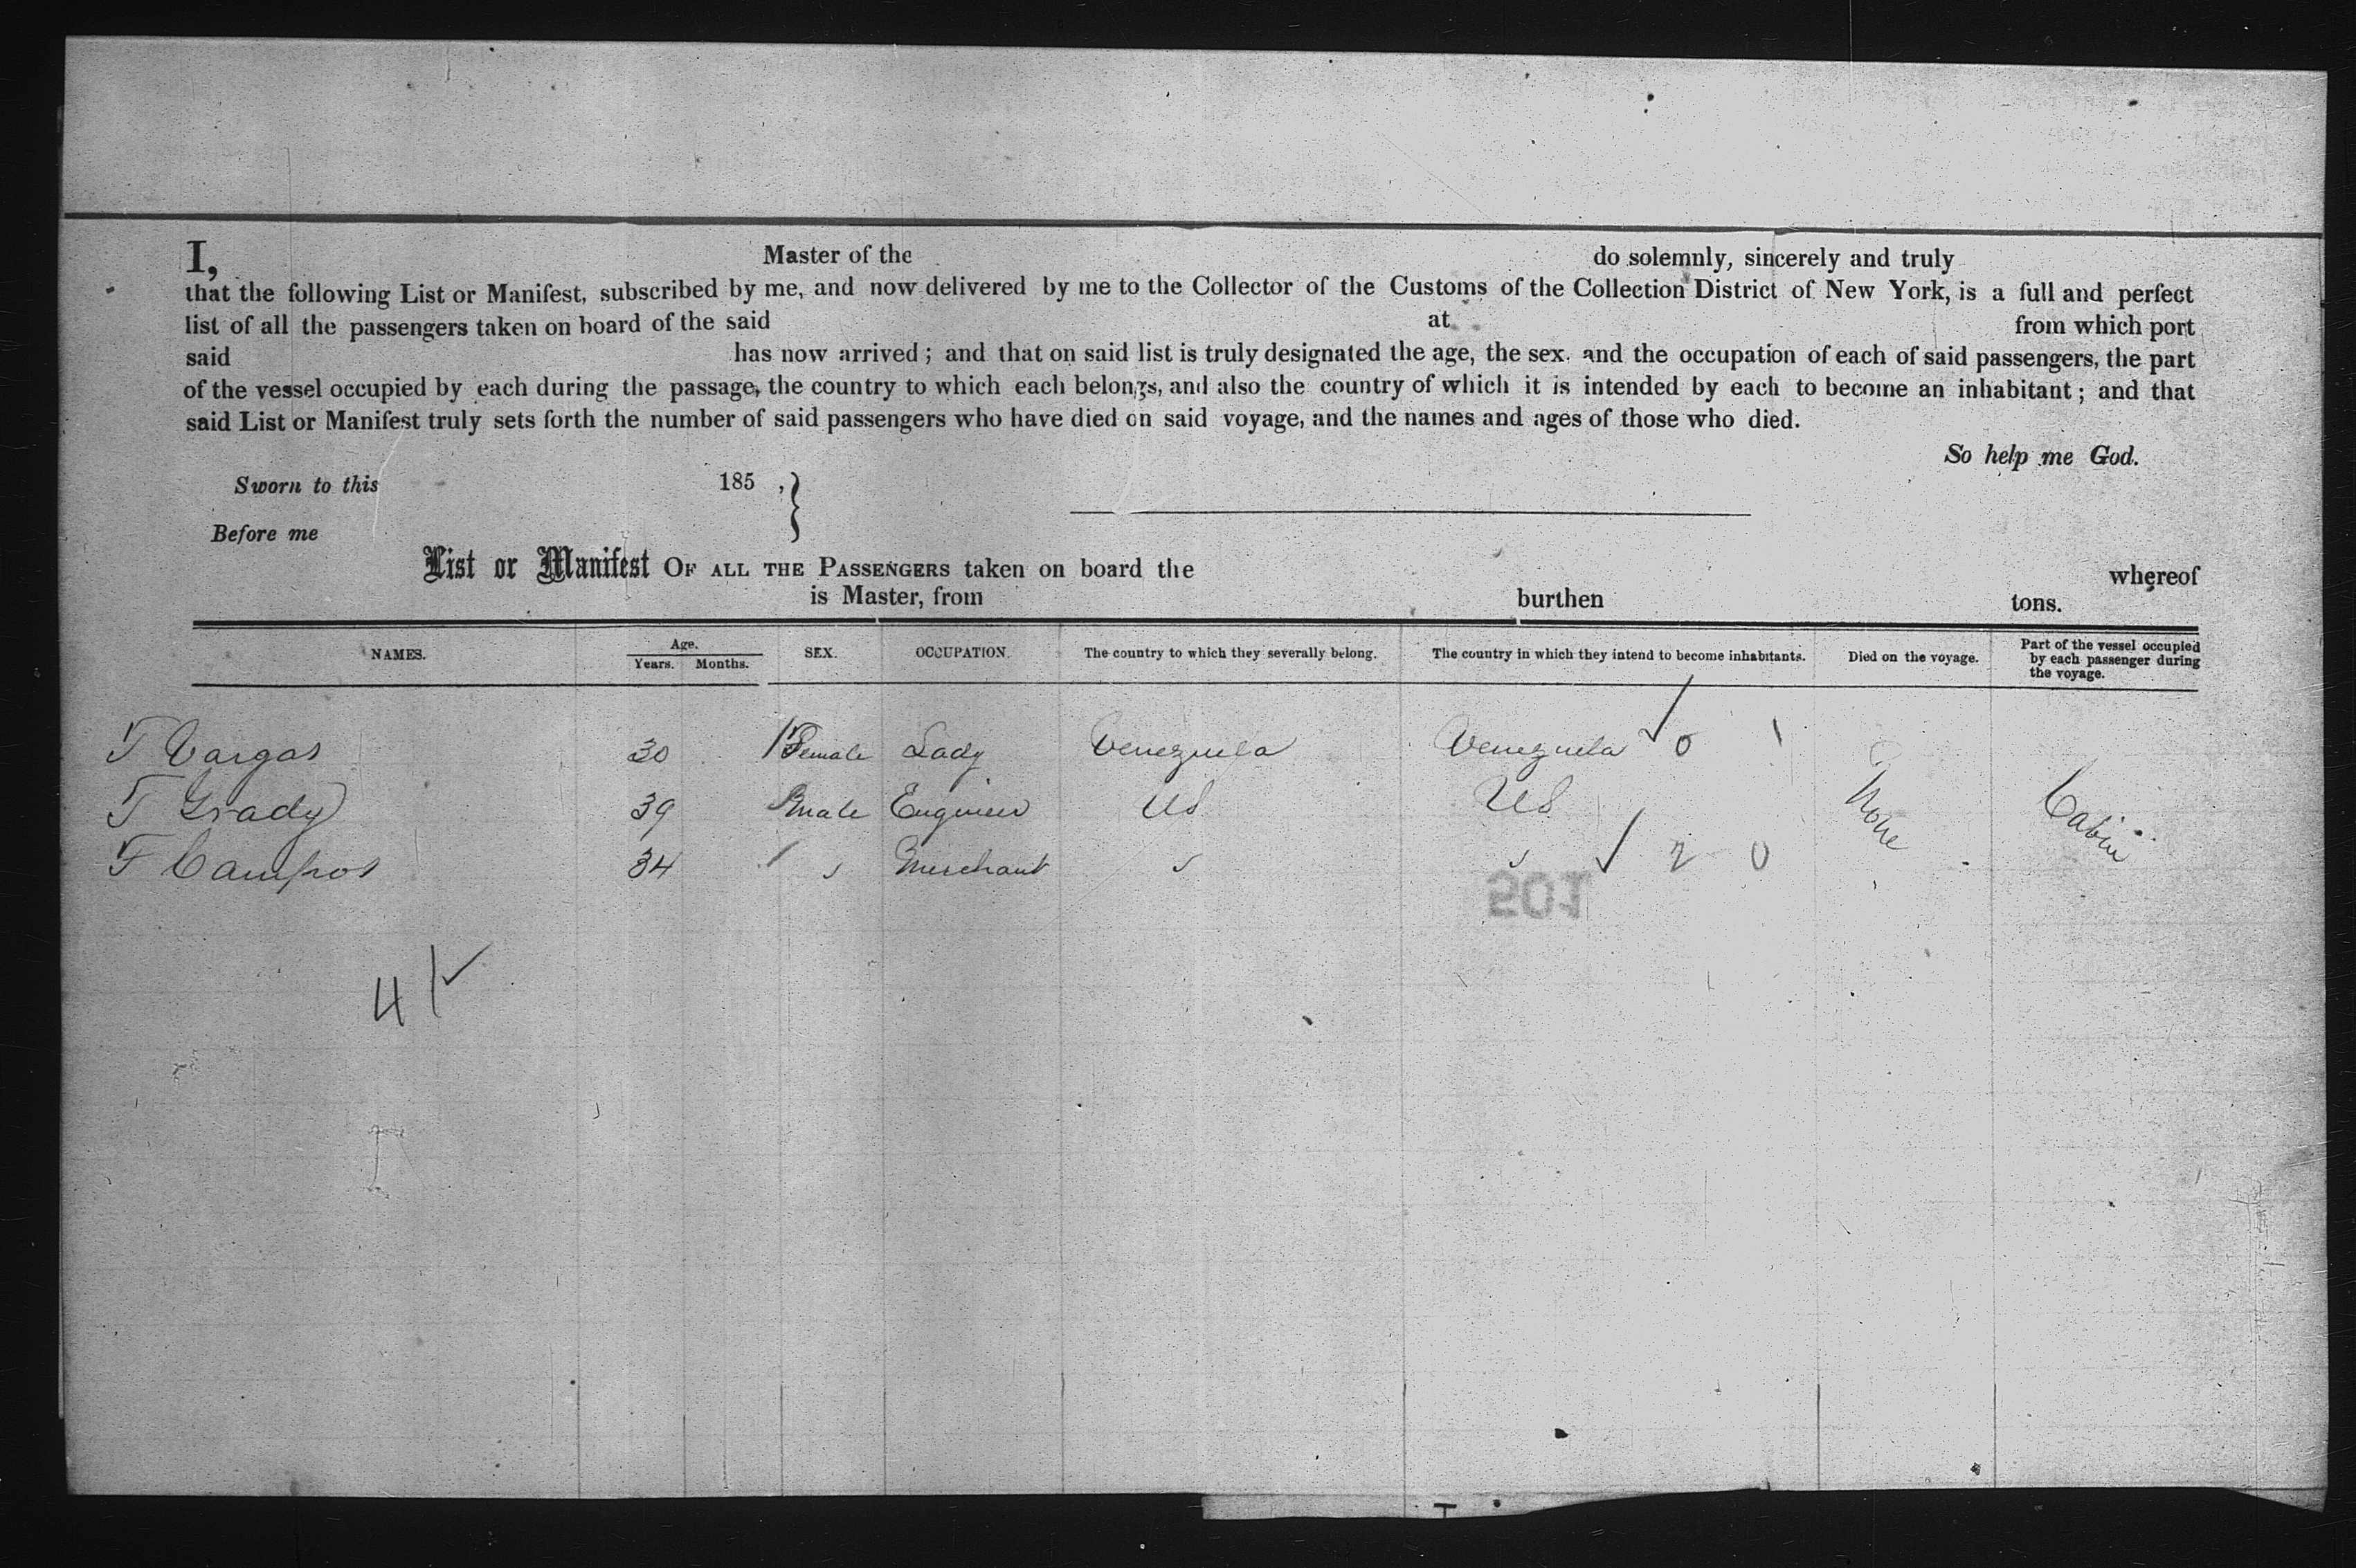 I, Master of the do solemnly, sincerely and truly
that the following List or Manifest, subscribed by me, and now delivered by me to the Collector of the Customs of the Collection District of New York, is a full and perfect
list of all the passengers taken on board of the said at from which port
said has now arrived; and that on said list is truly designated the age, the sex. and the occupation of each of said passengers, the part
of the vessel occupied by each during the passage, the country to which each belongs, and also the country of which it is intended by each to become an inhabitant; and that
said List or Manifest truly sets forth the number of said passengers who have died on said voyage, and the names and ages of those who died.
So help me God.
Sworn to this 185 ,
Before me
List or Manifest OF ALL THE PASSENGERS taken on board the whereof
is Master, from burthen tons.
NAMES. Age. Years. Months. SEX. OCCUPATION. The country to which they severally belong. The country in which they intend to become inhabitants. Died on the voyage. Part of the vessel occupied by each passenger during the voyage.
Vargas 30 Female Lady Venezuela Venezuela 0 1
Grady 39 male Engineer US US None Cabin
Campos 34 Merchant 2 0
501
4